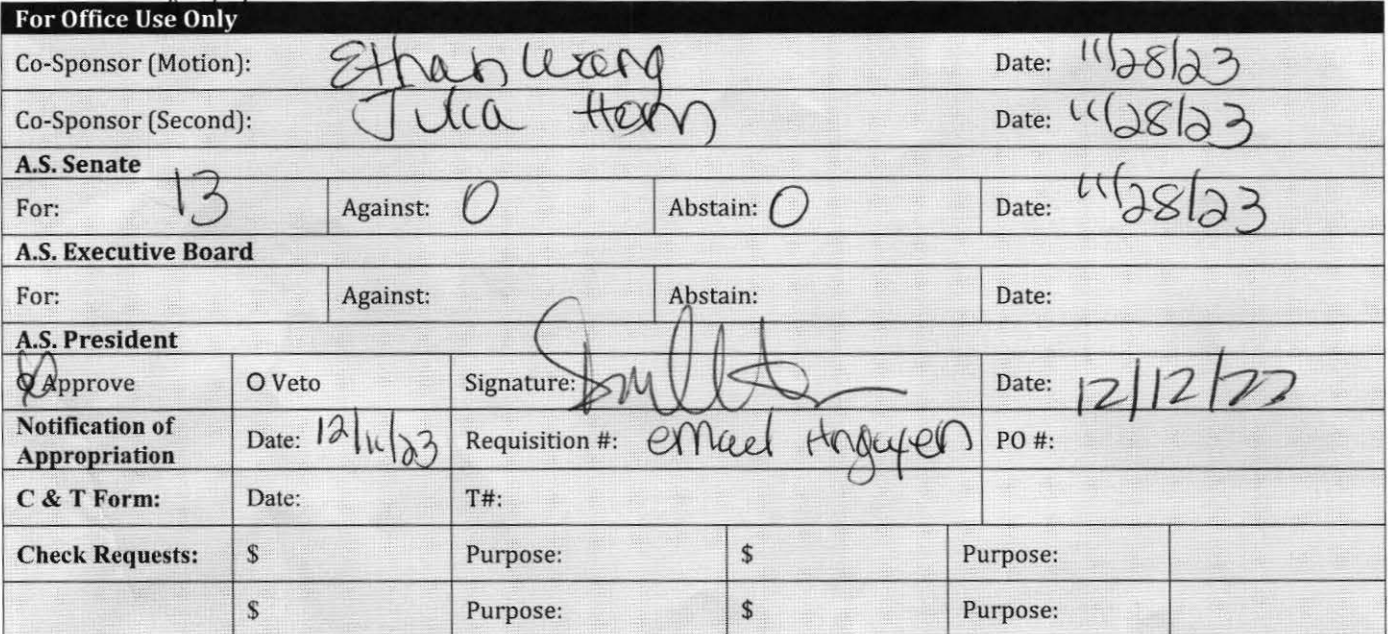 For Office Use Only
Co-Sponsor (Motion): Ethan Wang Date: 11/28/23
Co-Sponsor (Second): Julia Horn Date: 11/28/23
A.S. Senate
For: 13 Against: 0 Abstain: 0 Date: 11/28/23
A.S. Executive Board
For: Against: Abstain: Date:
A.S. President
O Approve O Veto Signature: Date: 12/12/22
Notification of Appropriation Date: 12/11/23 Requisition #: email Hnguyen PO #:
C & T Form: Date: T#:
Check Requests: $ Purpose: $ Purpose:
$ Purpose: $ Purpose: